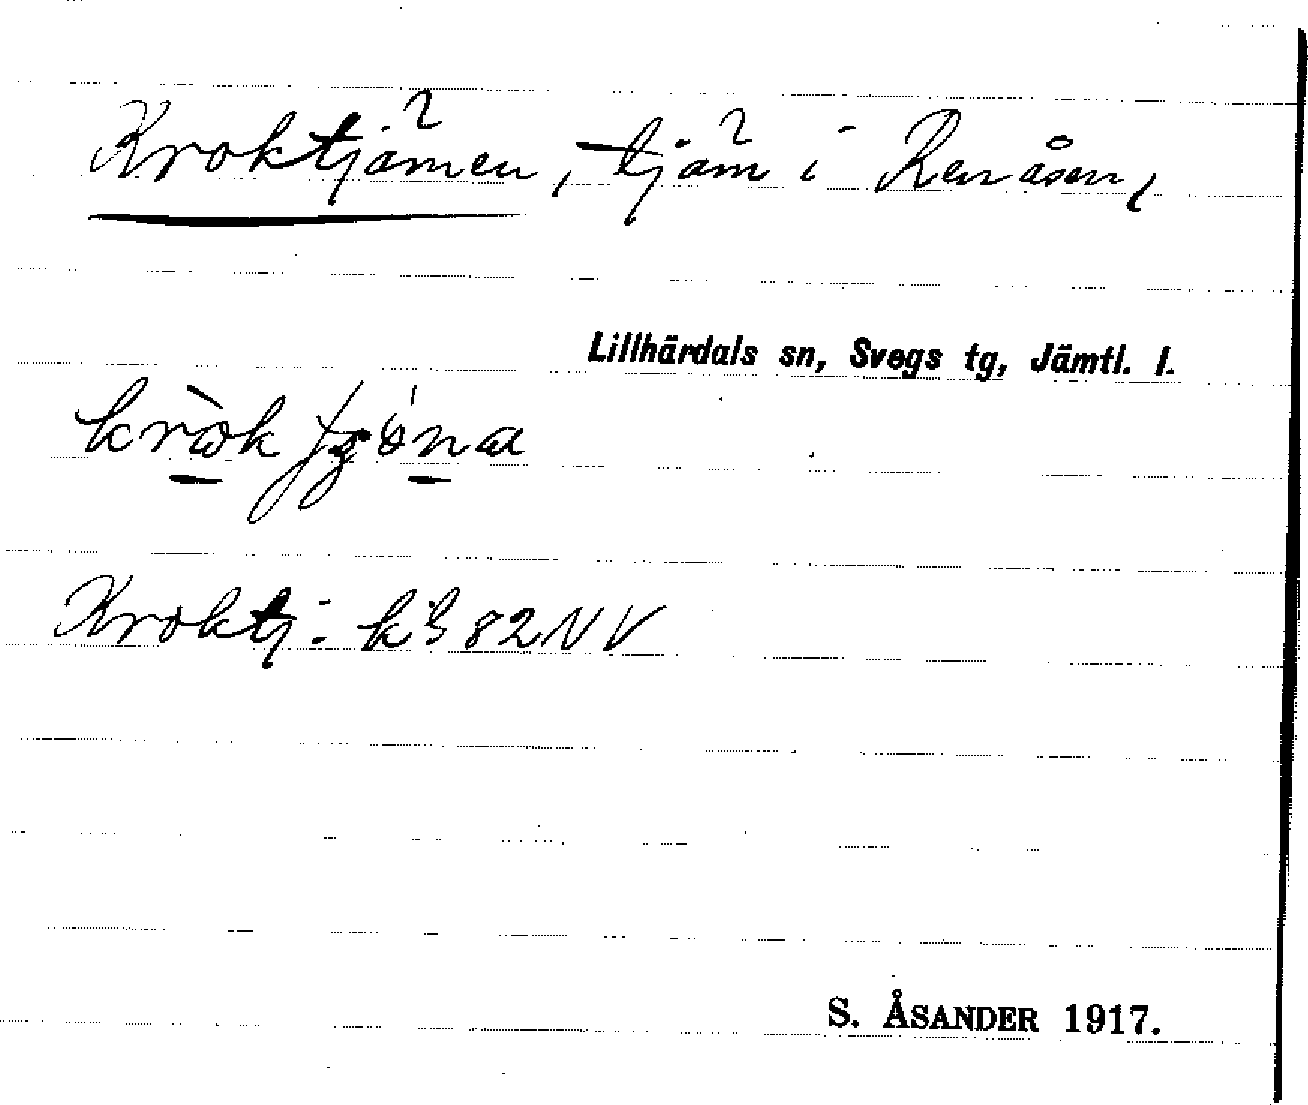 Kroktjärnen, tjärn i Renåsen,
Lillhärdals sn, Svegs tg, Jämtl. l.
Kroktj: kb 82 NV
S. ÅSANDER 1917.